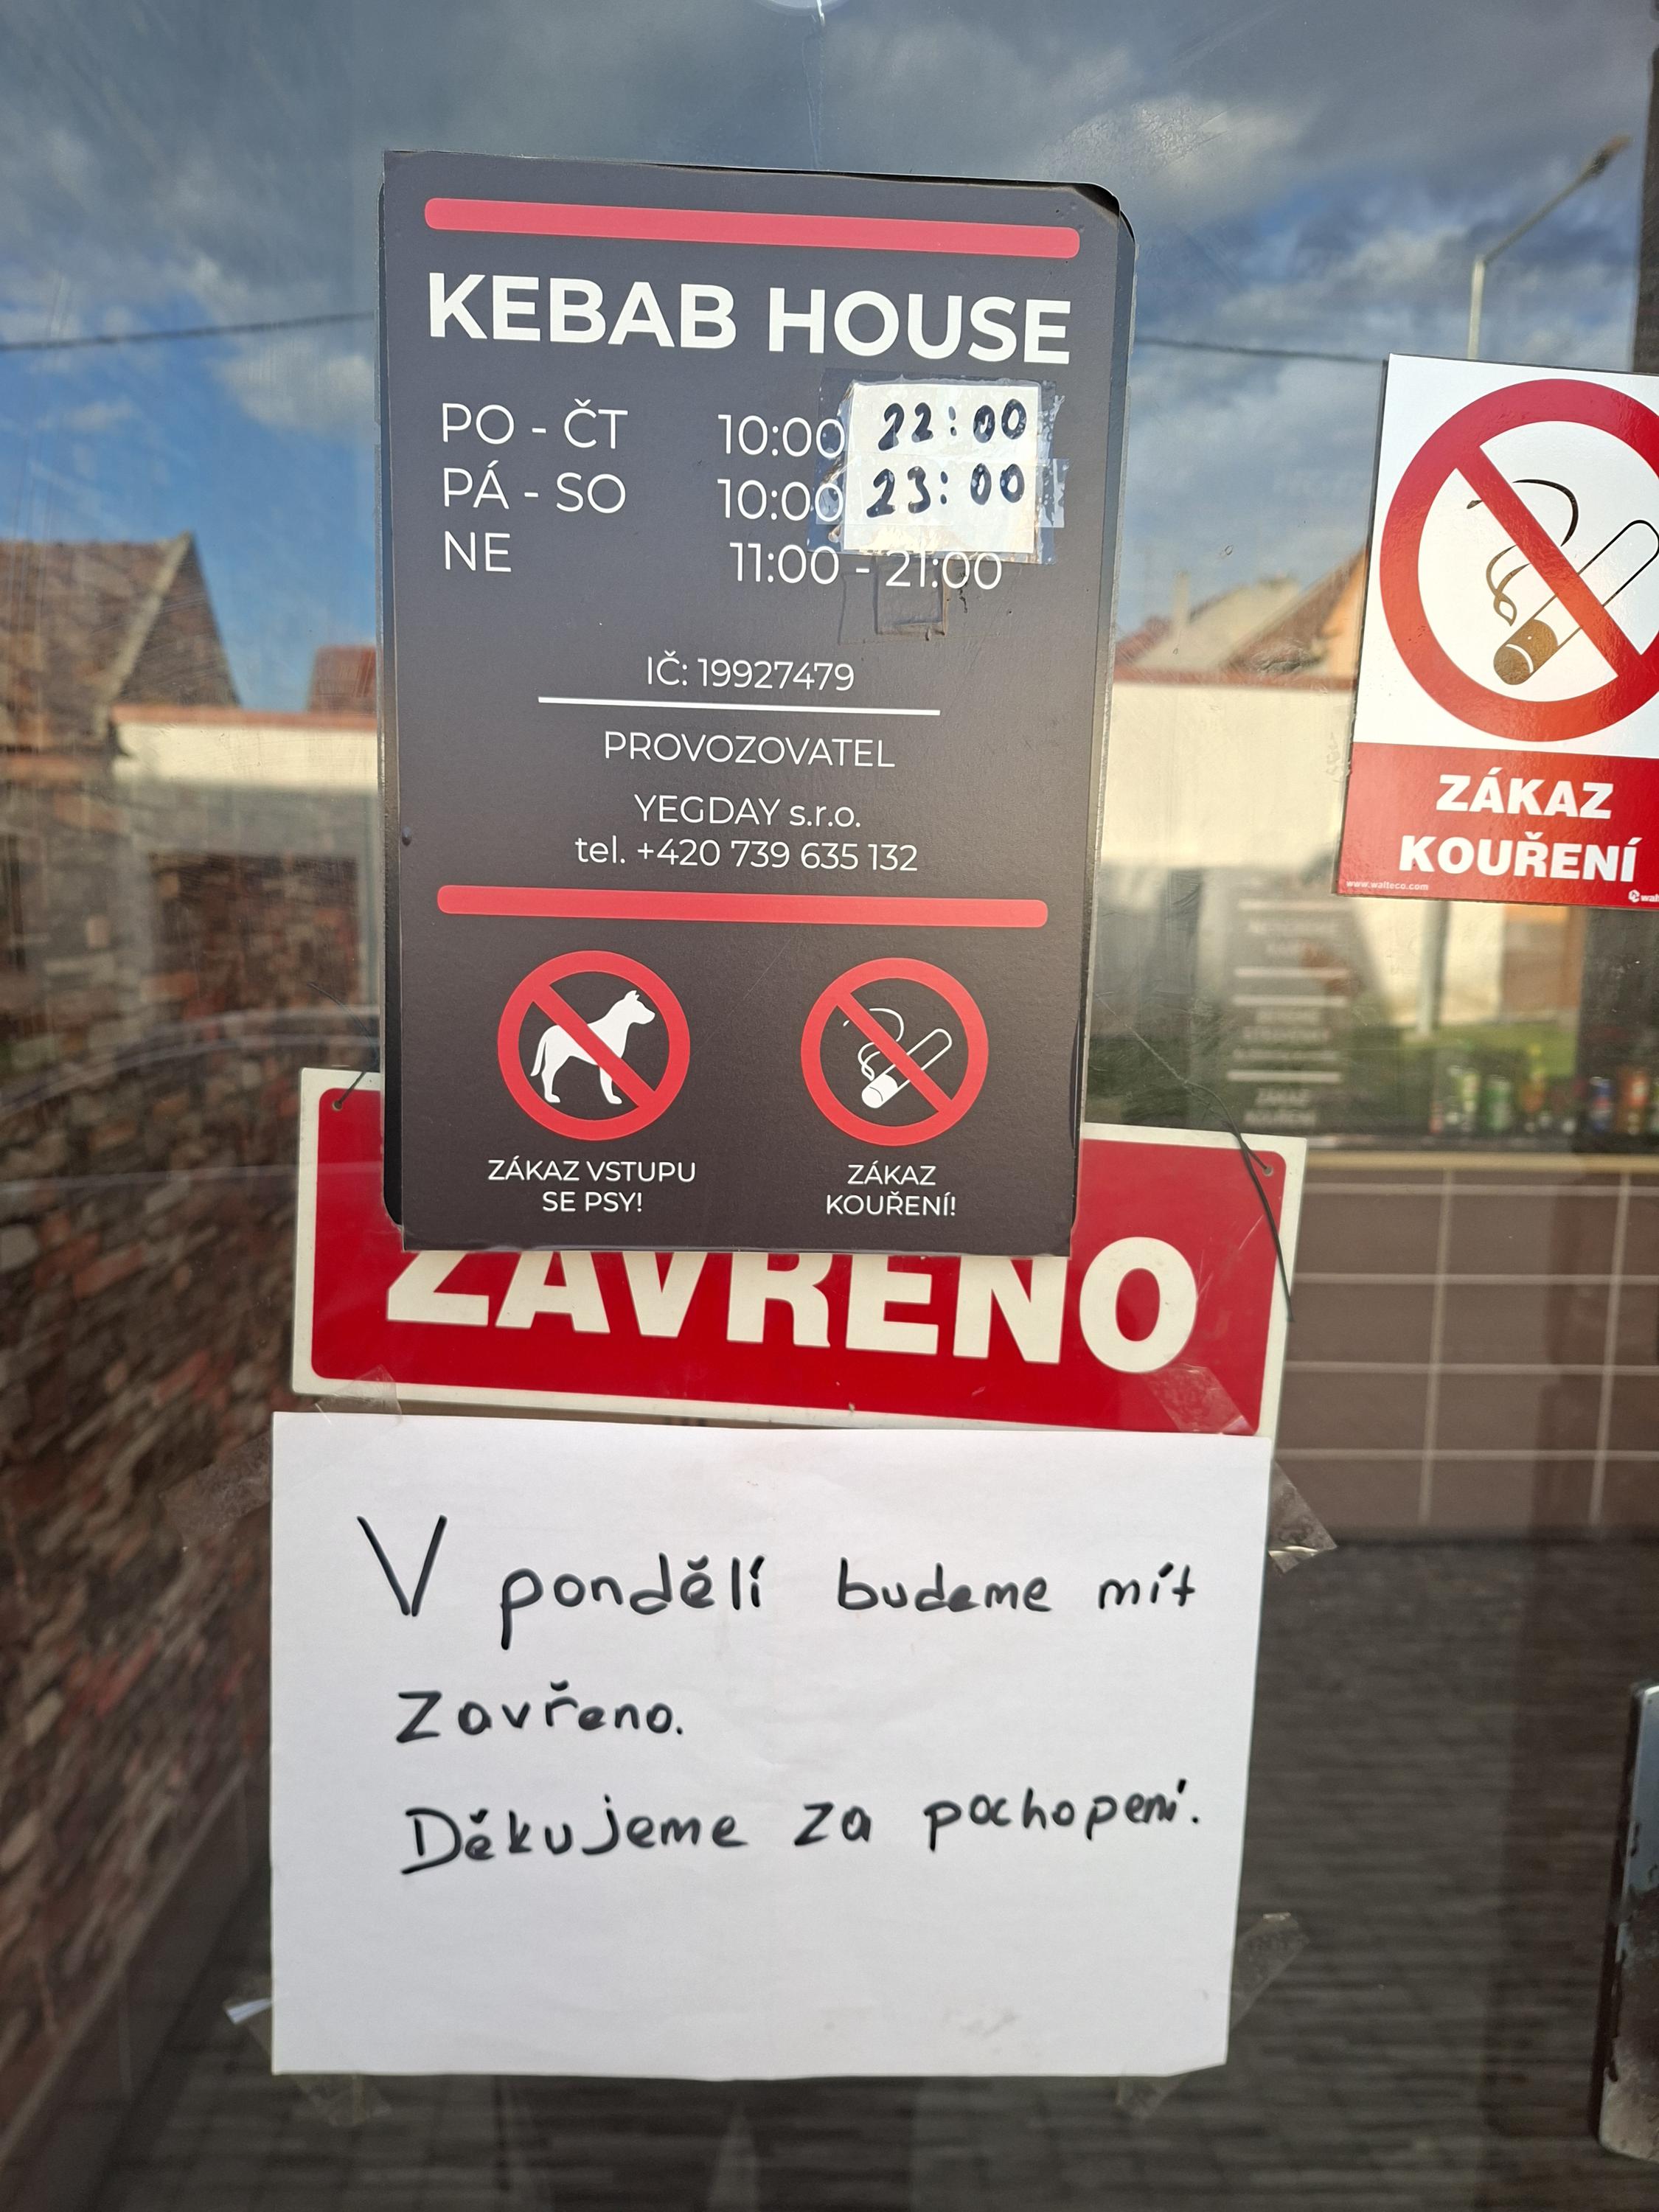 KEBAB HOUSE
PO - ČT 10:00 22:00
PÁ - SO 10:00 23:00
NE 11:00 - 21:00
IČ: 19927479
PROVOZOVATEL
YEGDAY s.r.o.
tel. +420 739 635 132
ZÁKAZ VSTUPU
SE PSY!
ZÁKAZ
KOUŘENÍ!
ZÁKAZ
KOUŘENÍ
www.walteco.com
ZAVŘENO
V pondělí budeme mít
Zavřeno.
Děkujeme za pochopení.